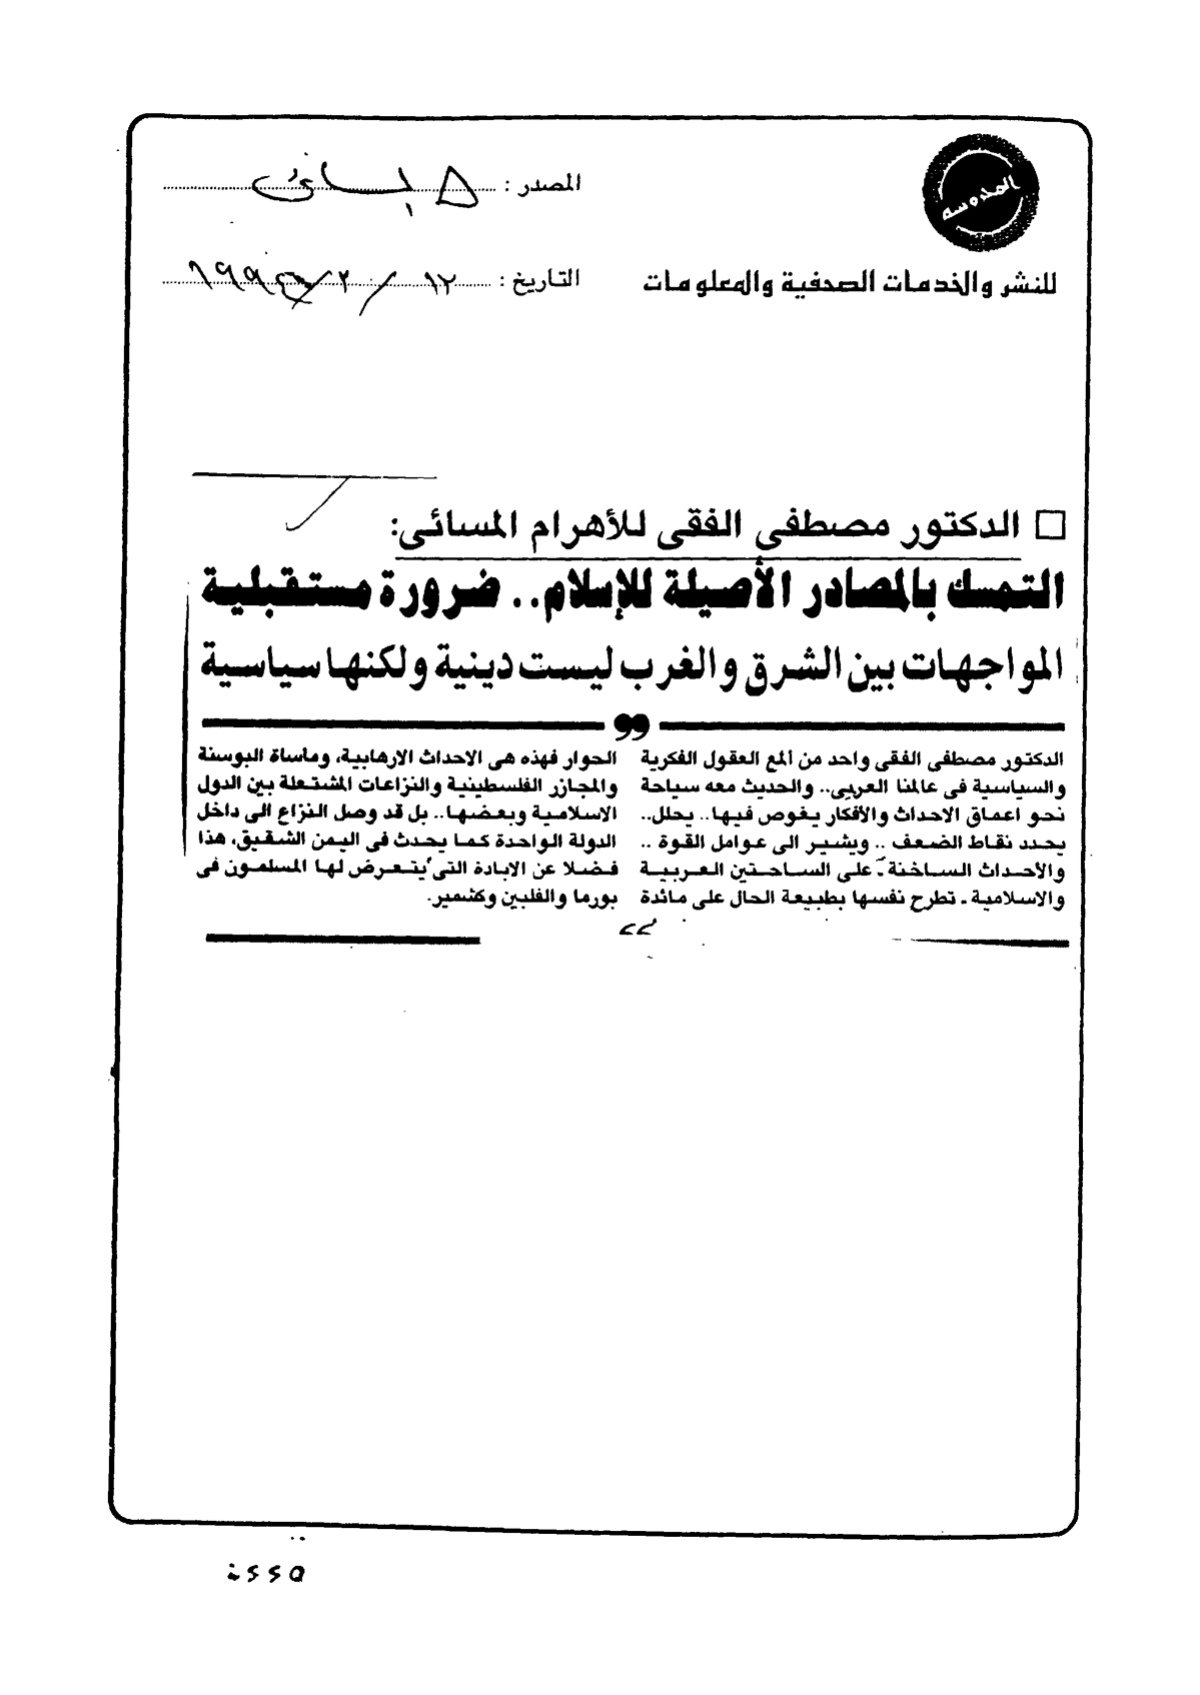 المصدر :
للنشر والخدمات الصحفية والمعلومات
التاريخ : ١٢ / ٣ /
□ الدكتور مصطفى الفقى للأهرام المسائى:
التمسك بالمصادر الأصيلة للإسلام.. ضرورة مستقبلية
المواجهات بين الشرق والغرب ليست دينية ولكنها سياسية
الدكتور مصطفى الفقى واحد من ألمع العقول الفكرية
والسياسية فى عالمنا العربى.. والحديث معه سياحة
نحو اعماق الاحداث والأفكار يغوص فيها.. يحلل..
يحدد نقاط الضعف .. ويشير الى عوامل القوة ..
والأحداث الساخنة - على الساحتين العربية
والاسلامية - تطرح نفسها بطبيعة الحال على مائدة
الحوار فهذه هى الاحداث الارهابية، ومأساة البوسنة
والمجازر الفلسطينية والنزاعات المشتعلة بين الدول
الاسلامية وبعضها.. بل قد وصل النزاع الى داخل
الدولة الواحدة كما يحدث فى اليمن الشقيق، هذا
فضلا عن الابادة التى يتعرض لها المسلمون فى
بورما والفلبين وكشمير.